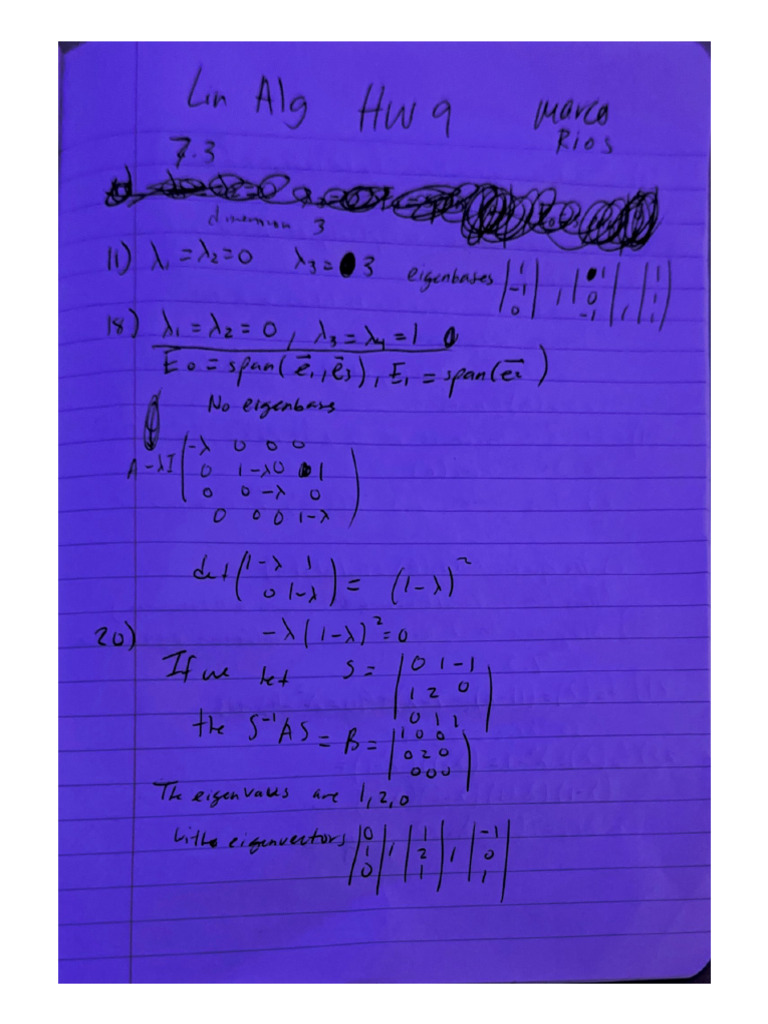 Lin Alg HW 9 Marco Rios
7.3
dimension 3
11) λ₁ = λ₂ = 0 λ₃ = 3 eigenbases |1 -1 0| , |1 0 -1| , |1 1 1|
18) λ₁ = λ₂ = 0 , λ₃ = λ₄ = 1
E₀ = span(e⃗₁, e⃗₃), E₁ = span(e⃗₂)
No eigenbass
A - λI (-λ 0 0 0
0 1-λ 0 1
0 0 -λ 0
0 0 0 1-λ)
det(1-λ 1
0 1-λ) = (1-λ)²
-λ(1-λ)² = 0
20)
If we let S = |0 1 -1
1 2 0
0 1 1|
the S⁻¹AS = B = |1 0 0
0 2 0
0 0 0|
The eigenvalus are 1, 2, 0
eigenvectors |0 1 0| , |1 2 1| , |-1 0 1|